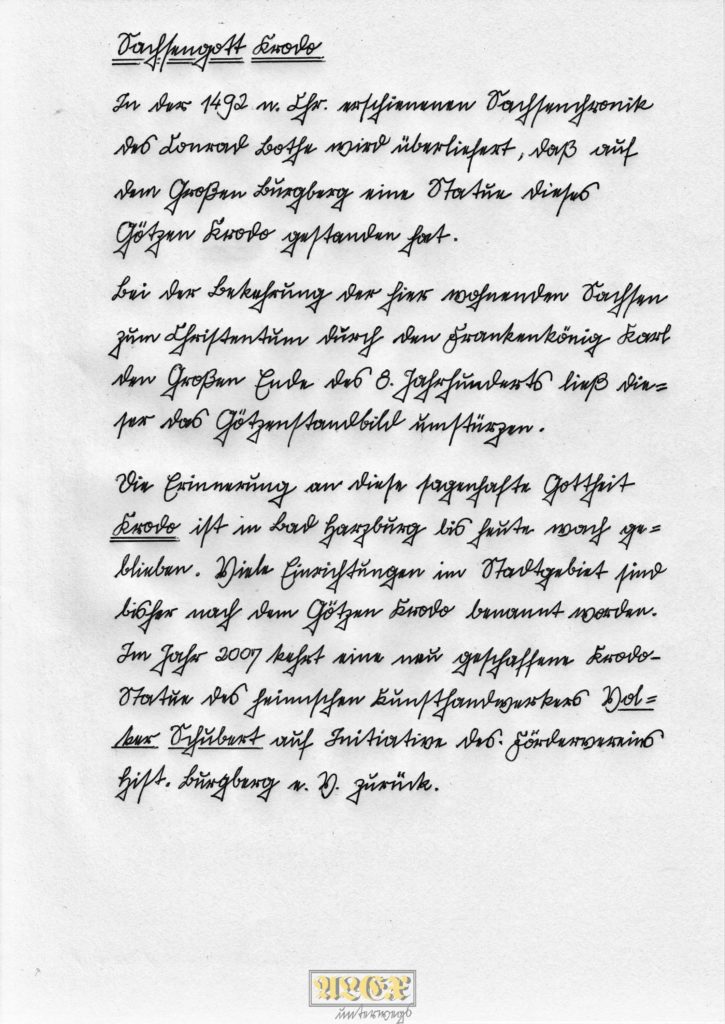 Sachsengott Krodo
In der 1492 n. Chr. erschienenen Sachsenchronik
des Conrad Bothe wird überliefert, daß auf
dem Großen Burgberg eine Statue dieses
Götzen Krodo gestanden hat.
Bei der Bekehrung der hier wohnenden Sachsen
zum Christentum durch den Frankenkönig Karl
den Großen Ende des 8. Jahrhunderts ließ die=
ser das Götzenstandbild umstürzen.
Die Erinnerung an diese sagenhafte Gottheit
Krodo ist in Bad Harzburg bis heute wach ge=
blieben. Viele Einrichtungen im Stadtgebiet sind
bisher nach dem Götzen Krodo benannt worden.
Im Jahr 2007 kehrt eine neu geschaffene Krodo-
Statue des heimischen Kunsthandwerkers Vol=
ker Schubert auf Initiative des. Fördervereins
Hist. Burgberg e. V. zurück.
ALEX
unterwegs